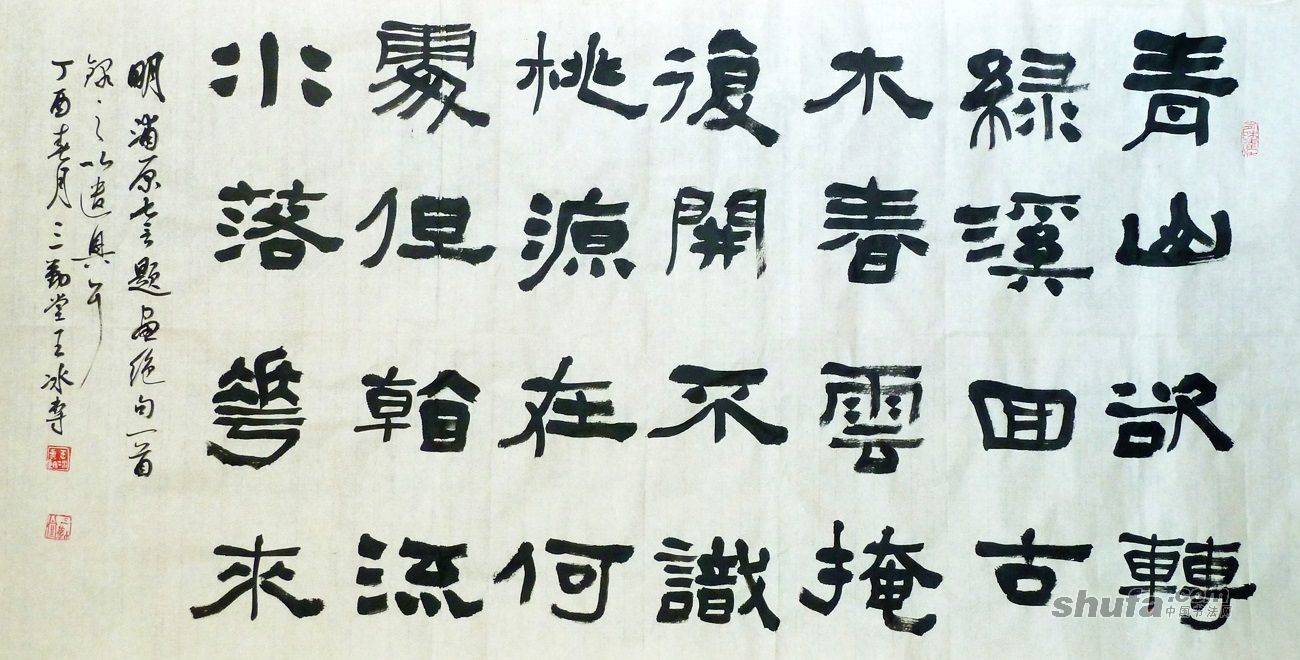 青山欲轉
綠溪回古
木春雲掩
復開不識
桃源在何
處但翰流
水落花來
明浦原七言題畫絕句一首
錄之以遣興耳
丁酉春月三勤堂王冰書
shufa.com
中国书法网